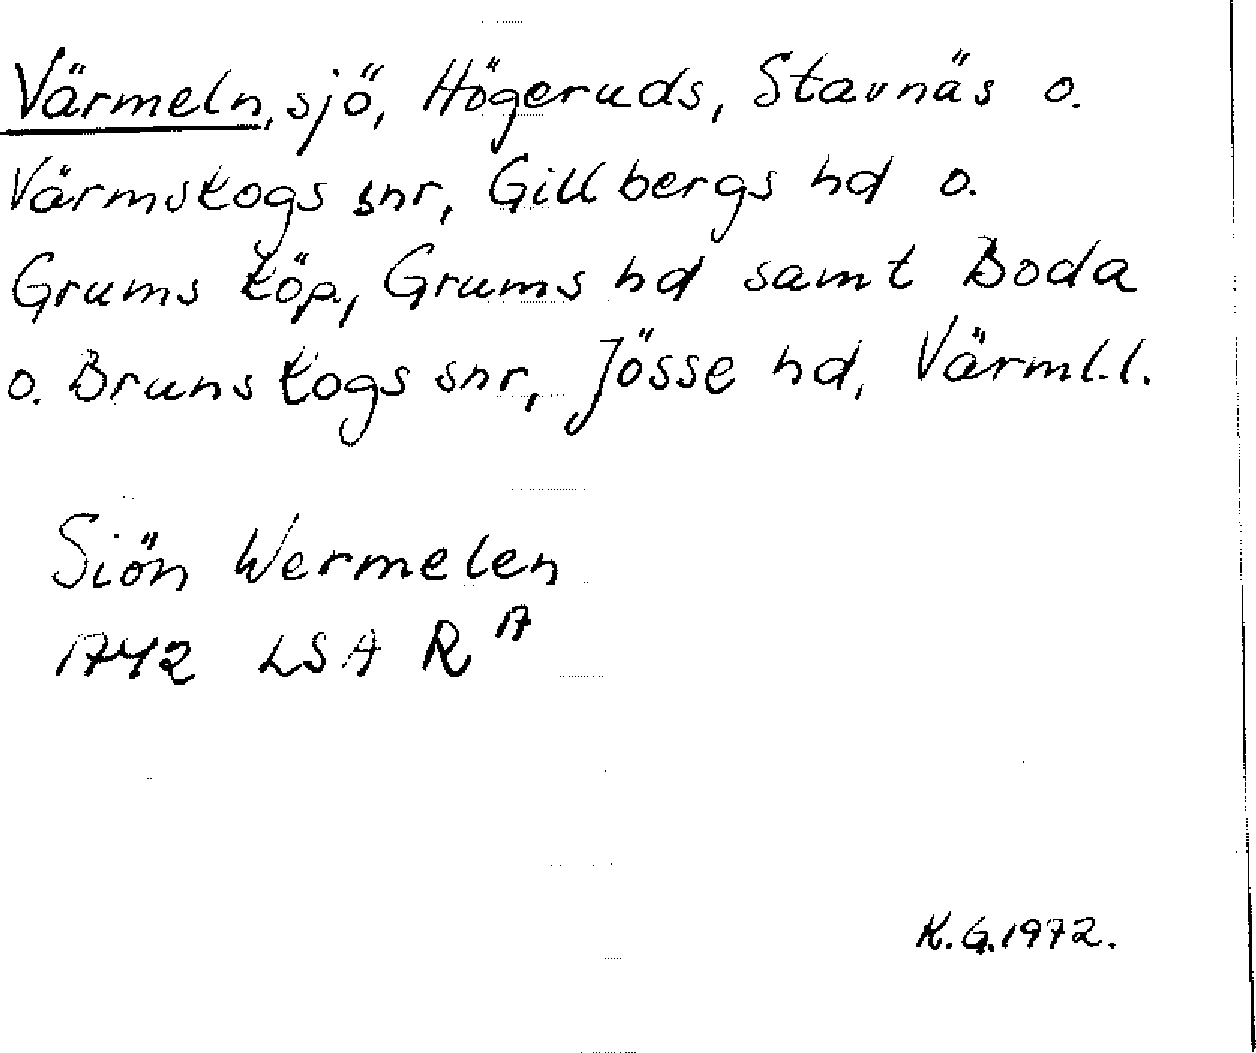 Värmeln, sjö, Högeruds, Stavnäs o.
Värmskogs snr, Gillbergs hd o.
Grums köp, Grums hd samt Boda
o. Brunskogs snr, Jösse hd, Värml.l.
Siön Wermelen
1742 LSA R 17
K.G.1972.